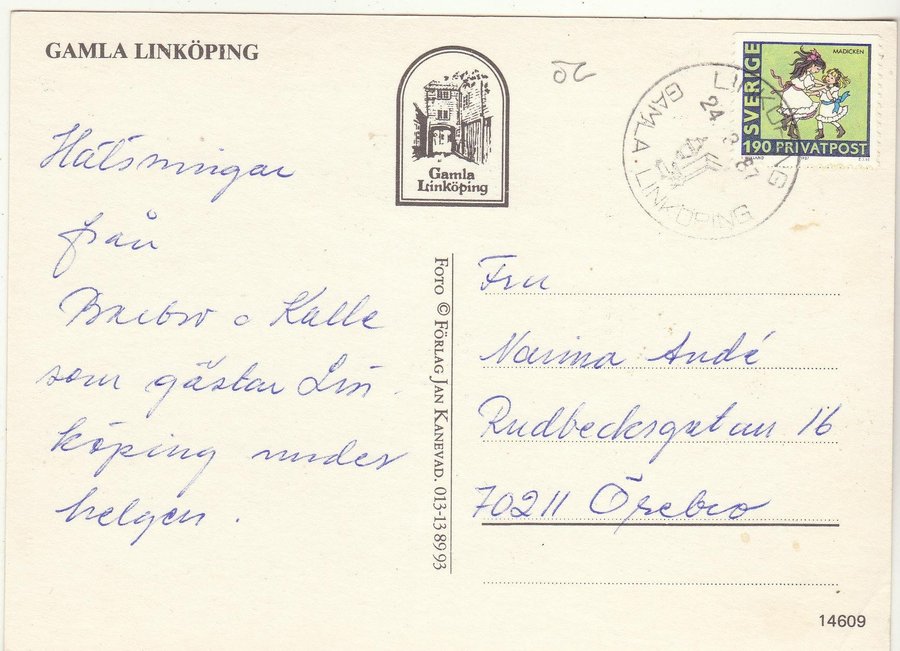 GAMLA LINKÖPING
Gamla
Linköping
20
LINKÖPING
24 3 87
GAMLA LINKÖPING
SVERIGE
MADICKEN
190 PRIVATPOST
Hälsningar
från
Barbro o Kalle
som gästar Lin
köping under
helgen.
FOTO © FÖRLAG JAN KANEVAD. 013-13 89 93
Fru
Narina Andé
Rudbecksgatan 16
70211 Örebro
14609